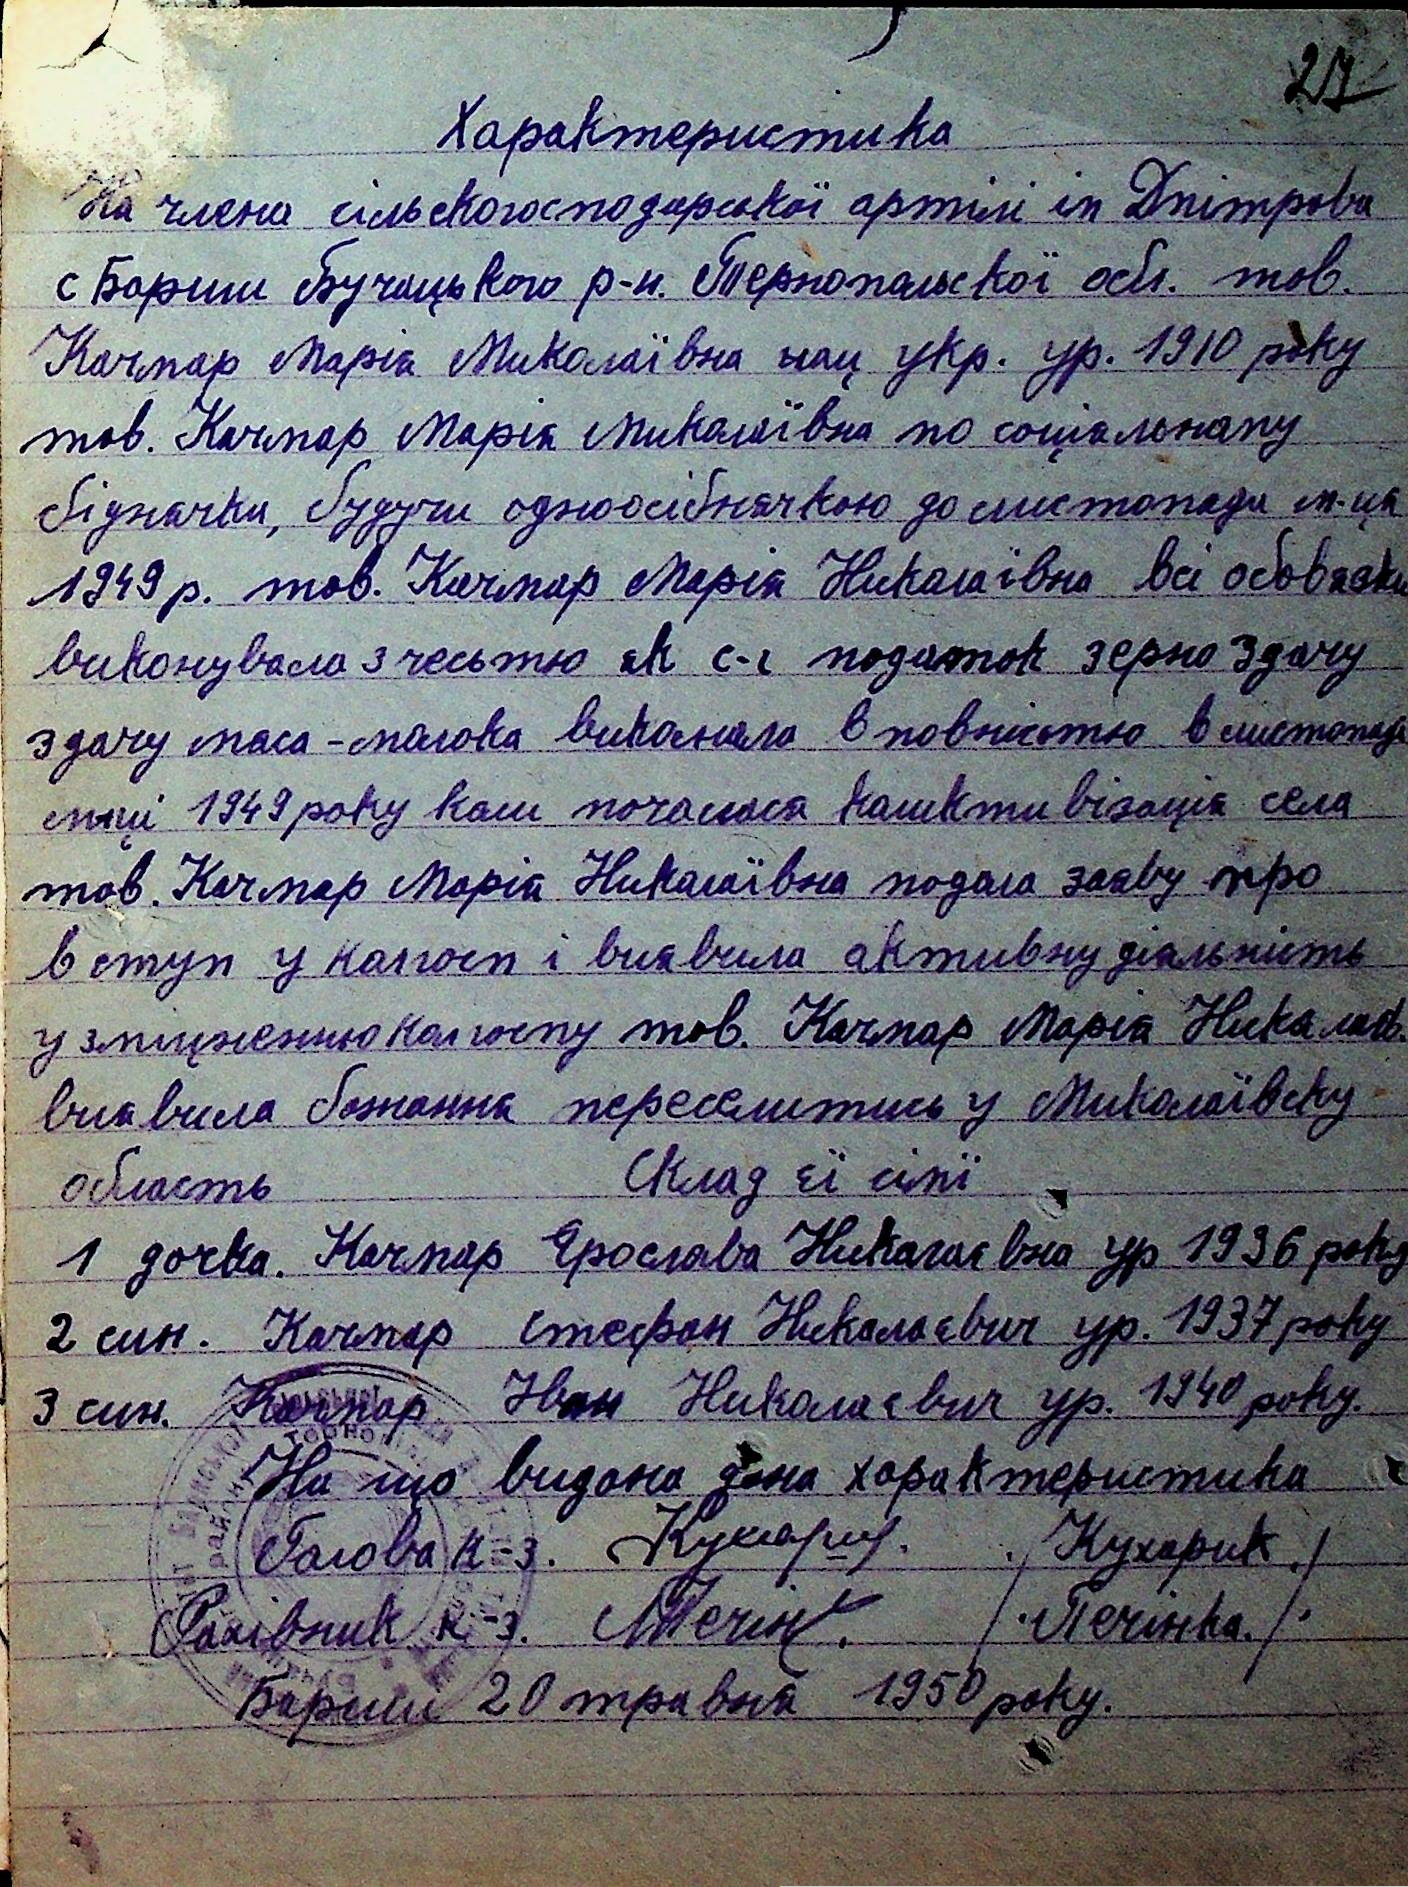 27
Характеристика
На члена сільскогосподарської артілі ім Дмітрова
с Бариш Бучацького р-н. Тернопольскої обл. тов.
Качмар Марія Миколаївна нац укр. ур. 1910 року
тов. Качмар Марія Миколаївна по соціальному
біднячка, будучи одноосібнячкою до листопада м-ця
1949 р. тов. Качмар Марія Николаївна всі обовязки
виконувала з честью як с-г податок зерно здачу
здачу мяса-молока виконала вповністю в листопаді
м-ці 1949 року коли почалася колективізація села
тов. Качмар Марія Николаївна подала заяву про
вступ у колгосп і виявила активну діяльність
у зміцненню колгоспу тов. Качмар Марія Николаїв.
виявила бажання переселитись у Миколаївску
область Склад її сімї
1 дочка. Качмар Ярослава Николаєвна ур 1936 року
2 син. Качмар Стефан Николаєвич ур. 1937 року
3 син. Качмар Іван Николаєвич ур. 1940 року.
На що видана дана характеристика
Голова к-з. Кухарик. / Кухарик /
Рахівник к-з. / Печінка. /
Бариш 20 травня 1950 року.